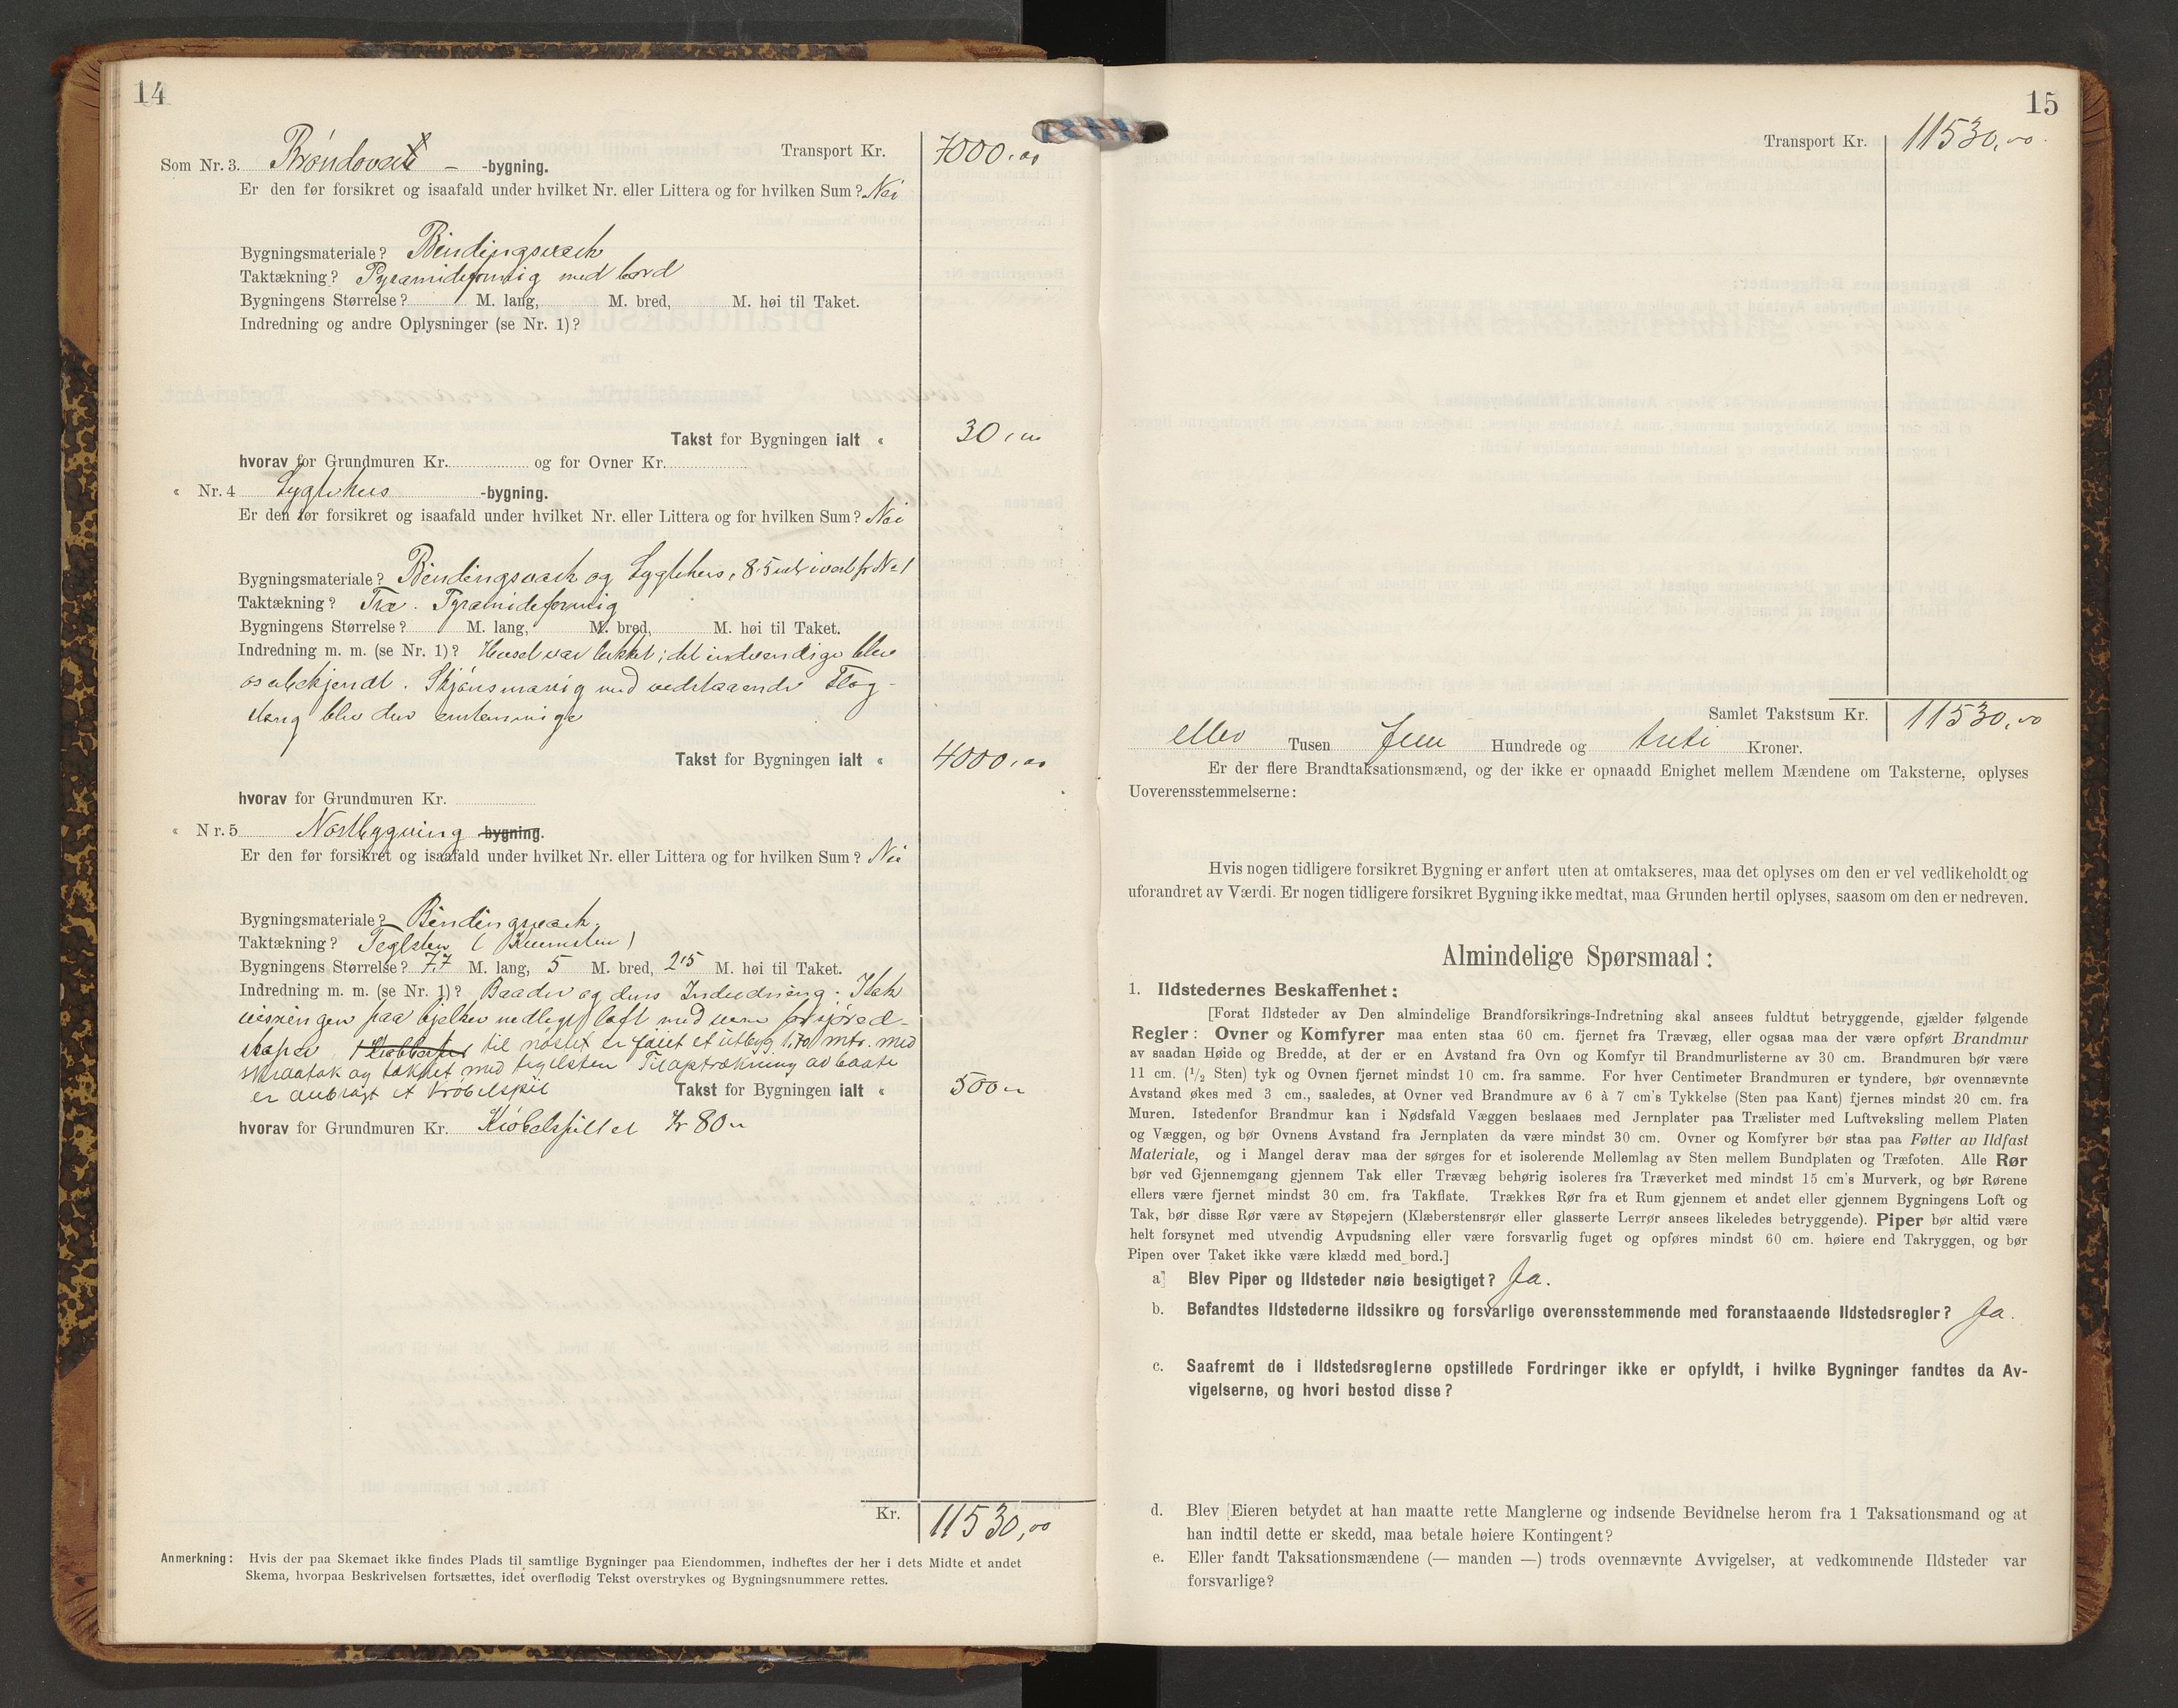 14
Transport Kr. 7000,00
Som Nr. 3. Brøndover – -bygning.
Er den før forsikret og isaafald under hvilket Nr. eller Littera og for hvilken Sum? Nei
Bygningsmateriale? Bindingsverk
Taktækning? Pyramideformig med bord
Bygningens Størrelse? M. lang, M. bred, M. høi til Taket.
Indredning og andre Oplysninger (se Nr. 1)?
Takst for Bygningen ialt « 30,00
hvorav for Grundmuren Kr. og for Ovner Kr.
« Nr. 4 Lygtehus -bygning.
Er den før forsikret og isaafald under hvilket Nr. eller Littera og for hvilken Sum? Nei
Bygningsmateriale? Bindingsverk og Lygtehus, 85 mtr i vest fr No 1
Taktækning? Træ. Pyramideformig
Bygningens Størrelse? M. lang, M. bred, M. høi til Taket.
Indredning m. m. (se Nr. 1)? Huset var lukket; det indvendige blev
os ubekjendt. Skjønsmæssig med vedstaaende Flag-
stang blev den enstemmige
Takst for Bygningen ialt « 4000,00
hvorav for Grundmuren Kr.
« Nr. 5 Nøstbygning -bygning.
Er den før forsikret og isaafald under hvilket Nr. eller Littera og for hvilken Sum? Nei
Bygningsmateriale? Bindingverk.
Taktækning? Teglsten (Krumsten)
Bygningens Størrelse? 7,7 M. lang, 5 M. bred, 2,5 M. høi til Taket.
Indredning m. m. (se Nr. 1)? Baader og dens Indredning.
paa bjelker nedlagt loft med
skaper. til nøstet er føiet et utbyg 1.70 mtr. med
skraatak og tækket med teglsten Til optrækning av baate
er anbragt et Krøbelspil Takst for Bygningen ialt « 500,00
hvorav for Grundmuren Kr. Krøbelspillet Kr 80,00
Kr. 11530,00
Anmerkning: Hvis der paa Skemaet ikke findes Plads til samtlige Bygninger paa Eiendommen, indheftes der her i dets Midte et andet
Skema, hvorpaa Beskrivelsen fortsættes, idet overflødig Tekst overstrykes og Bygningsnummere rettes.
15
Transport Kr. 11530,00
Samlet Takstsum Kr. 11530,00
ellev Tusen fem Hundrede og treti Kroner.
Er der flere Brandtaksationsmænd, og der ikke er opnaadd Enighet mellem Mændene om Taksterne, oplyses
Uoverensstemmelserne:
Hvis nogen tidligere forsikret Bygning er anført uten at omtakseres, maa det oplyses om den er vel vedlikeholdt og
uforandret av Værdi. Er nogen tidligere forsikret Bygning ikke medtat, maa Grunden hertil oplyses, saasom om den er nedreven.
Almindelige Spørsmaal:
1. Ildstedernes Beskaffenhet:
[Forat Ildsteder av Den almindelige Brandforsikrings-Indretning skal ansees fuldtut betryggende, gjælder følgende
Regler: Ovner og Komfyrer maa enten staa 60 cm. fjernet fra Trævæg, eller ogsaa maa der være opført Brandmur
av saadan Høide og Bredde, at der er en Avstand fra Ovn og Komfyr til Brandmurlisterne av 30 cm. Brandmuren bør være
11 cm. (1/2 Sten) tyk og Ovnen fjernet mindst 10 cm. fra samme. For hver Centimeter Brandmuren er tyndere, bør ovennævnte
Avstand økes med 3 cm., saaledes, at Ovner ved Brandmure av 6 à 7 cm's Tykkelse (Sten paa Kant) fjernes mindst 20 cm. fra
Muren. Istedenfor Brandmur kan i Nødsfald Væggen beslaaes med Jernplater paa Trælister med Luftveksling mellem Platen
og Væggen, og bør Ovnens Avstand fra Jernplaten da være mindst 30 cm. Ovner og Komfyrer bør staa paa Føtter av Ildfast
Materiale, og i Mangel derav maa der sørges for et isolerende Mellemlag av Sten mellem Bundplaten og Træfoten. Alle Rør
bør ved Gjennemgang gjennem Tak eller Trævæg behørig isoleres fra Træverket med mindst 15 cm's Murverk, og bør Rørene
ellers være fjernet mindst 30 cm. fra Takflate. Trækkes Rør fra et Rum gjennem et andet eller gjennem Bygningens Loft og
Tak, bør disse Rør være av Støpejern (Klæberstensrør eller glasserte Lerrør ansees likeledes betryggende). Piper bør altid være
helt forsynet med utvendig Avpudsning eller være forsvarlig fuget og opføres mindst 60 cm. høiere end Takryggen, og bør
Pipen over Taket ikke være klædd med bord.]
a] Blev Piper og Ildsteder nøie besigtiget? Ja.
b. Befandtes Ildstederne ildssikre og forsvarlige overensstemmende med foranstaaende Ildstedsregler? Ja.
c. Saafremt de i Ildstedsreglerne opstillede Fordringer ikke er opfyldt, i hvilke Bygninger fandtes da Av-
vigelserne, og hvori bestod disse?
d. Blev [Eieren betydet at han maatte rette Manglerne og indsende Bevidnelse herom fra 1 Taksationsmand og at
han indtil dette er skedd, maa betale høiere Kontingent?
e. Eller fandt Taksationsmændene (— manden —) trods ovennævnte Avvigelser, at vedkommende Ildsteder var
forsvarlige?